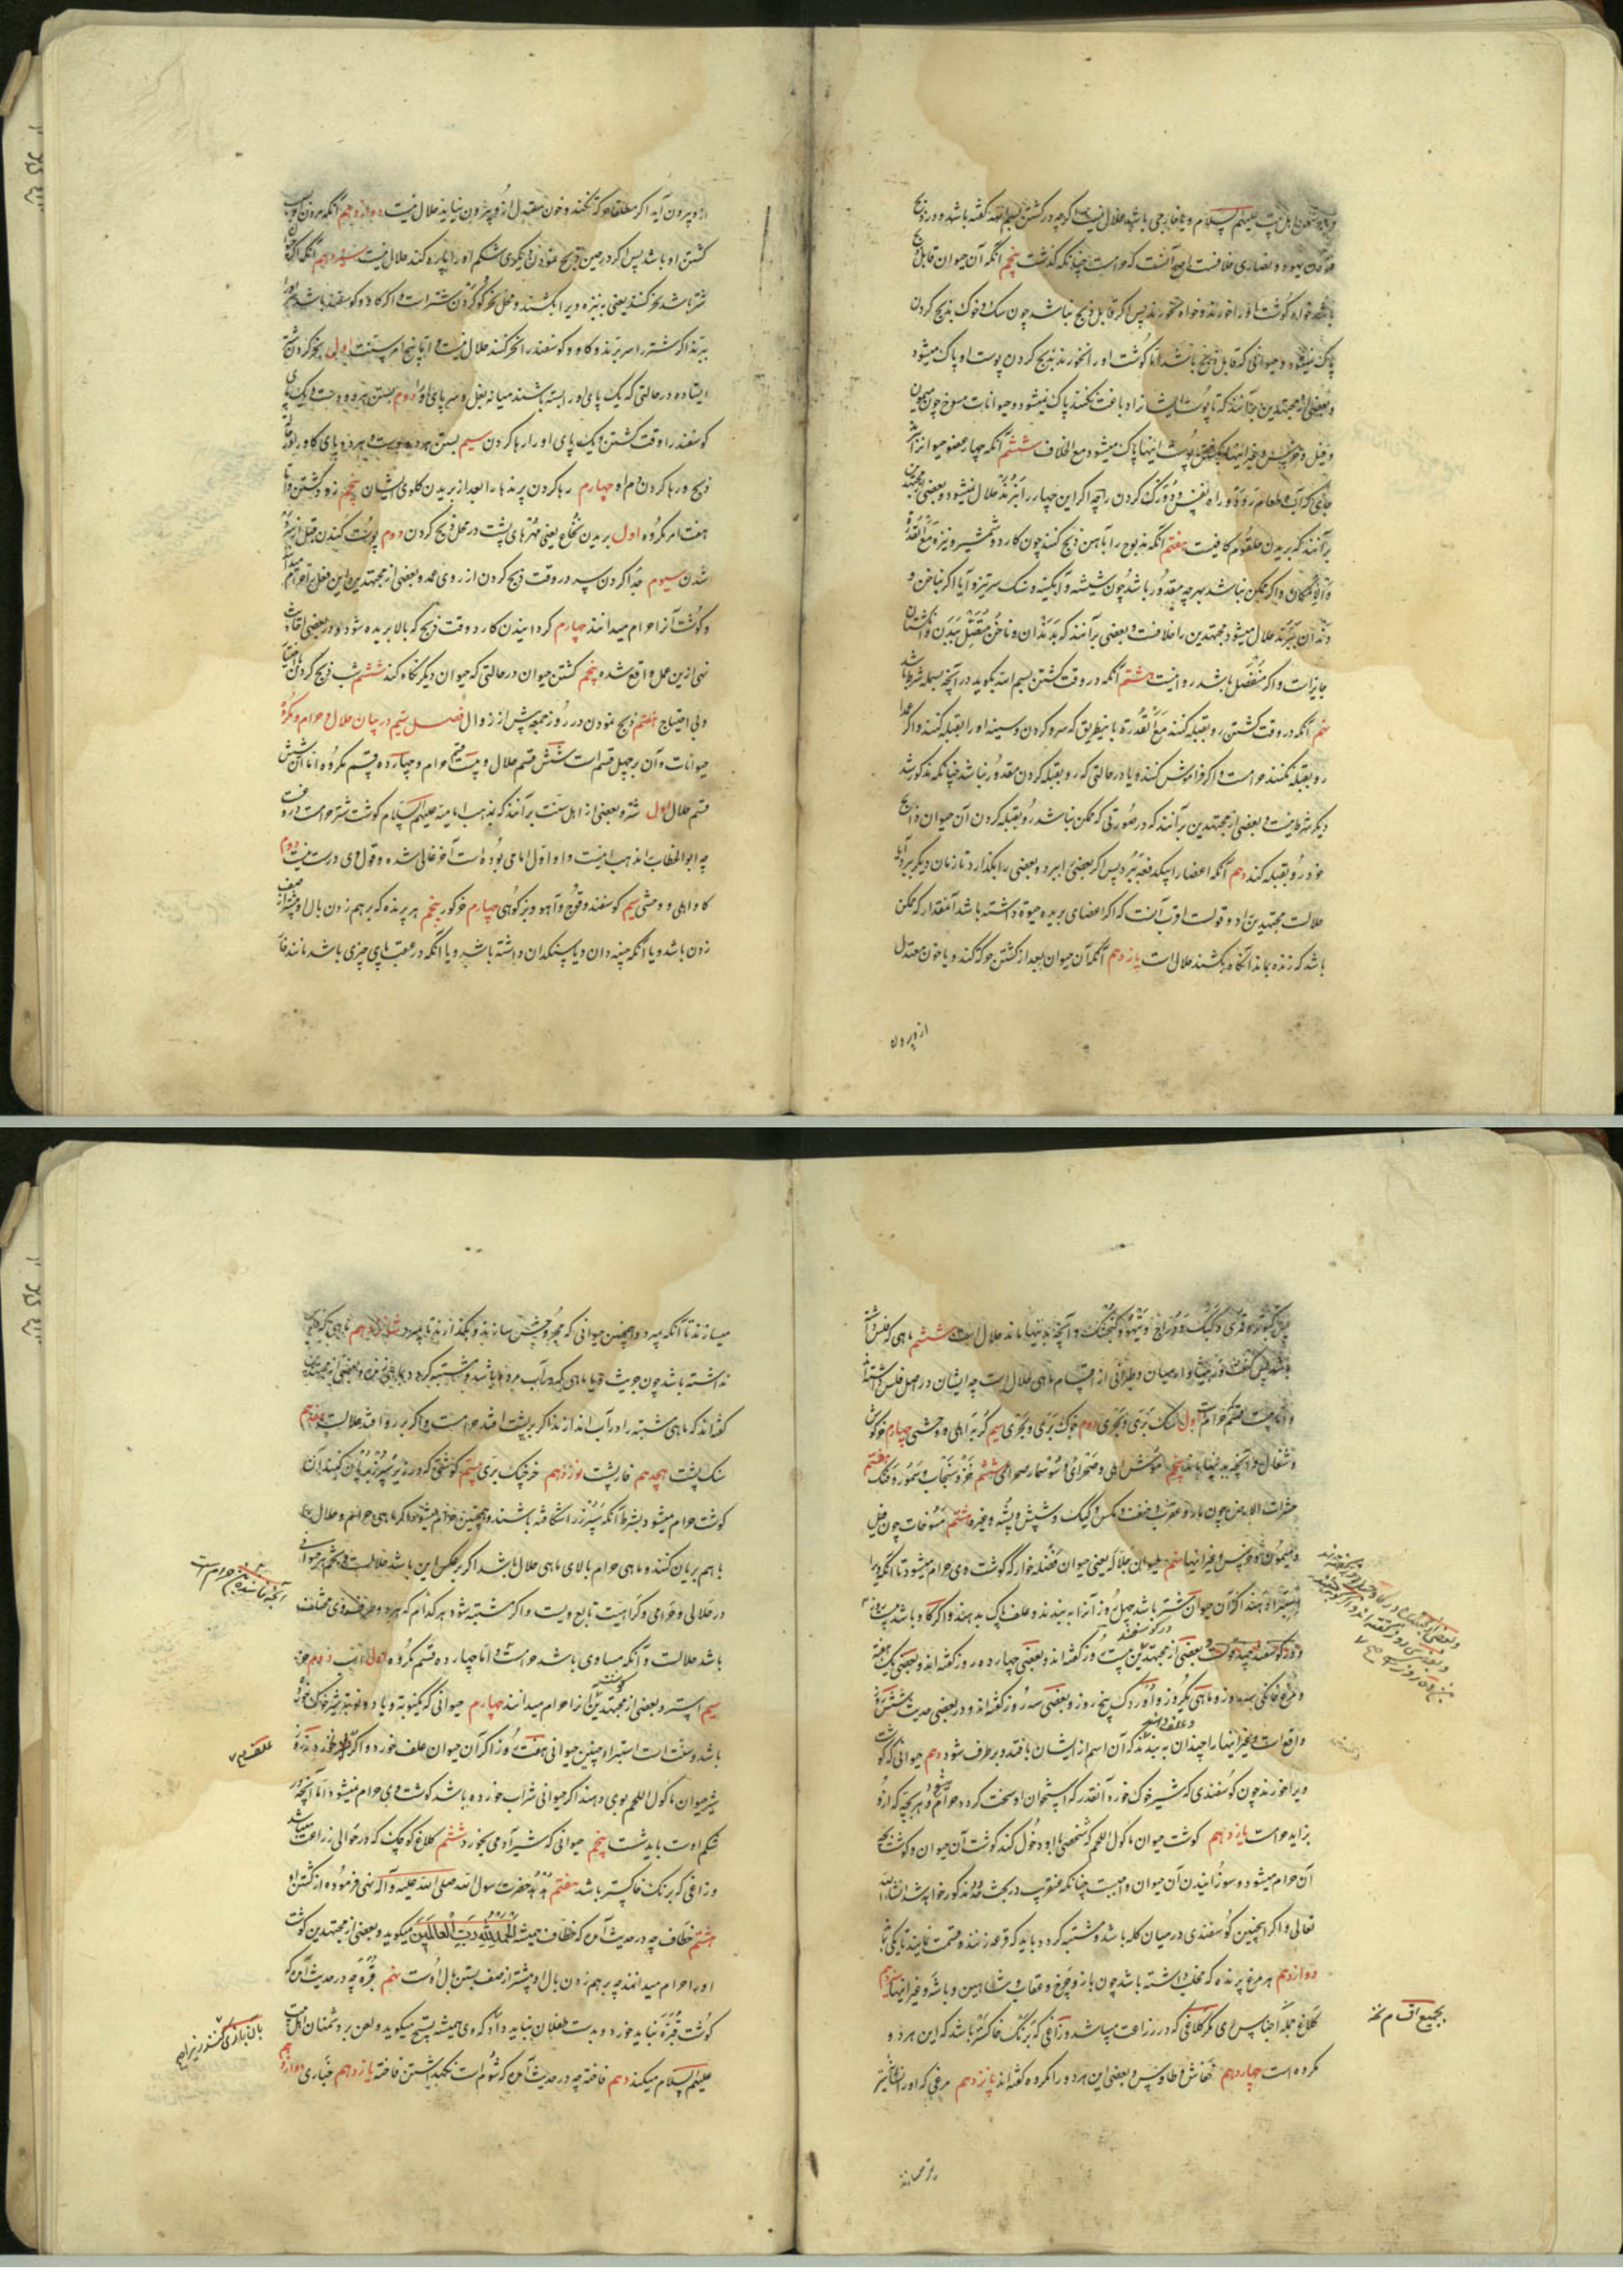 اهل بیت علیهم السلام و یا خارجی باشد حلال نیست اکرچه در کشتن بسم الله کفته باشد و در ذبح
یهود و نصاری خلافست اصح آنست که حرامست چنانکه کذشت پنجم آنکه آن حیوان قابل ذبح
باشد خواه کوشت او را خورند و خواه نخورند پس اکر قابل ذبح نباشد چون سک و خوک بذبح کردن
پاک نمیشود و حیوانی که قابل ذبح باشد اما کوشت او را نخورند بذبح کردن پوست او پاک میشود
و بعضی از مجتهدین برآنند که تا پوست ایشانرا دباغت نکنند پاک نمیشود و حیوانات مسوخ چون میمون
و فیل و خرس و غیر اینها پوست اینها پاک میشود مع الخلاف ششم آنکه چهار عضو حیوانرا از
جای که آب و طعام رود و راه نفس و دو رک کردن را چه اکر این چهار را نبرند حلال نمیشود و بعضی مجتهدین
برآنند که بریدن حلقوم کافیست هفتم آنکه مذبوح را بآهن ذبح کنند چون کارد و شمشیر و نیزه مع القدره
و الامکان و اکر ممکن نباشد بهرچه مقدور باشد چون شیشه و آبکینه و سنک سر تیز و آیا اکر بناخن و
دندان ببرند حلال میشود مجتهدین را خلافست و بعضی برآنند که بدندان و ناخن متصل ببدن و انکشتان
جایز است و اکر منفصل باشد روا نیست هشتم آنکه در وقت کشتن بسم الله بکوید در آنچه بسمله شرط باشد
نهم آنکه در وقت کشتن رو بقبله کنند مع القدره باینطریق که سر و کردن و سینه او را بقبله کنند و اکر عمدا
رو بقبله نکنند حرامست و اکر فراموش کنند و یا در حالتی که رو بقبله کردن مقدور نباشد چنانکه مذکور شد
دیکر شرط نیست و بعضی از مجتهدین برآنند که در صورتی که ممکن نباشد رو بقبله کردن آن حیوان ذابح
خود رو بقبله کند دهم آنکه اعضا را بیکدفعه ببرد پس اکر بعضی ببرد و بعضی را بکذارد تا زمان دیکر ببرد آیا
حلالست مجتهدین را دو قولست اقرب آنست که اکر اعضای بریده حیوة داشته باشد آنمقدار که ممکن
باشد که زنده بماند آنکاه بکشند حلال است یازدهم آنکه آن حیوان بعد از کشتن حرکة کند و یا خون معتدل
ازو بیرون
ازو بیرون آید اکر مطلقا حرکة نکند و خون معتدل ازو بیرون نیاید حلال نیست دوازدهم آنکه مردن
کشتن او باشد پس اکر در حین ذبح نمودن دیکری شکم او را پاره کند حلال نیست سیزدهم آنکه اکر
شتر باشد نحر کنند یعنی به نیزه ویرا بکشند و محل نحر کو کردن شتر است و اکر کاو و کوسفند باشد
ببرند اکر شتر را سر برند و کاو و کوسفند را نحر کنند حلال نیست و اما پنج امر سنت اول نحر کردن شتر
ایستاده در حالتی که یک پای او را بسته باشند میانه بغل و سر پای او دوم بستن هر دو دست و یک پای
کوسفند را وقت کشتن و یک پای او را رها کردن سیم بستن هر دو دست و هر دو پای کاو را در
ذبح و رها کردن دم او چهارم رها کردن پرندها را بعد از بریدن کلوی ایشان پنجم زود کشتن و اما
هفت امر مکروه اول بریدن نخاع یعنی مهرهای پشت در محل ذبح کردن دوم پوست کندن قبل از سرد
شدن سیوم جدا کردن سر در وقت ذبح کردن از روی عمد و بعضی از مجتهدین این فعل را حرام میدانند
و کوشت آنرا حرام میدانند چهارم کردانیدن کارد وقت ذبح که بالا بریده شود و در بعضی احادیث
نهی ازین عمل واقع شده پنجم کشتن حیوان در حالتی که حیوان دیکر نکاه کند ششم شب ذبح کردن با اختیار
و بی احتیاج هفتم ذبح نمودن در روز جمعه پیش از زوال فصل سیم در بیان حلال و حرام و مکروه
حیوانات و آن بر چهل قسم است شش قسم حلال و بیست قسم حرام و چهارده قسم مکروه اما آن شش
قسم حلال اول شتر و بعضی از اهل سنت برآنند که بمذهب امامیه علیهم السلام کوشت شتر حرامست دروغست
چه ابوالخطاب را مذهب اینست و او اول امامی بوده است آخر غالی شده و قول وی درست نیست دوم
کاو اهلی و وحشی سیم کوسفند و قوچ و آهو و بز کوهی چهارم خر کور پنجم هر پرنده که بر هم زدن بال او بیشتر از صف
زدن باشد و یا آنکه چینه دان و یا سنکدان داشته باشد و یا آنکه در عقب پای چیزی باشد مانند خار
کبوتر و قمری و کبک و دراج و تیهو و کنجشک و آنچه بدینها ماند حلال است ششم ماهی که فلس داشته
باشد پس و اربیان و طمرانی از اقسام ماهی حلال است چه ایشان در اصل فلس داشته اند
و اما بیست قسم حرام اول سک بری و بحری دوم خوک بری و بحری سیم کربه اهلی و وحشی چهارم خرکوش
و شغال و آنچه بدینها ماند پنجم موش اهلی و صحرائی و سوسمار صحرائی ششم خز و سنجاب و سمور و فنک هفتم
حشرات الارض چون مار و عقرب و خنفسا و مکس و کیک و شپش و پشه و غیره هشتم مسوخات چون فیل
و میمون و خرس و غیر اینها نهم حیوان جلال یعنی حیوان فضله خوار که کوشت وی حرام میشود تا آنکه ویرا
استبرا دهند اکر آن حیوان شتر باشد چهل روز آنرا به بندند و علف پاک بدهند و اکر کاو باشد بیست روز
و در کوسفند ده روزست و بعضی از مجتهدین بیست روز کفته اند و بعضی چهارده روز کفته اند و بعضی یک هفته
و مرغ خانکی سه روز و ماهی یکروز و در اردک پنج روز و بعضی سه روز کفته اند و در بعضی حدیث شش روز
واقع است و غیر اینها را چندان به بندند که آن اسم از ایشان بافتد و برطرف شود دهم حیوانی که کوشت
ویرا خورند چون کوسفندی که شیر خوک خورد آنقدر که استخوان او سخت کردد حرام میشود و هر بچه که ازو
بزاید حرامست یازدهم کوشت حیوان ماکول اللحم که شخصی با او دخول کند کوشت آن حیوان و کوشت بچه
آن حرام میشود و سوزانیدن آن حیوان واجبست چنانکه عنقریب در بحث حدود مذکور خواهد شد انشاء الله
تعالی و اکر اینچنین کوسفندی در میان کله باشد و مشتبه کردد باید که قرعه زنند و قسمت نمایند تا یکی بماند
دوازدهم هر مرغ پرنده که مخلب داشته باشد چون باز و چرغ و عقاب و شاهین و باشه و غیر اینها سیزدهم
کلاغ بجمله اجناس وی مکر کلاغی که در زراعت میباشد و زاغی که برنک خاکستر باشد که این هر دو
مکروه است چهاردهم خفاش و طاوس و بعضی این هر دو را مکروه کفته اند پانزدهم مرغی که او را نشانه تیر
بجمیع اقسام
میسازند تا آنکه بمیرد و همچنین حیوانی که مجروحش سازند و بکذارند تا بمیرد شانزدهم ماهی که فلس
نداشته باشد چون جریث و یا ماهی که در آب مرده باشد و مشتبه کردد و بعضی از مجتهدین
کفته اند که ماهی مشتبه را در آب اندازند اکر بر پشت افتد حرامست و اکر بر رو افتد حلالست هفدهم
سنک پشت هجدهم خارپشت نوزدهم خرچنک بری بیستم کوشتی که در زیر سپرز بریان کنند آن
کوشت حرام میشود بشرط آنکه سپرز را شکافته باشند و همچنین حرام میشود اکر ماهی حرام و حلال را
با هم بریان کنند و ماهی حرام بالای ماهی حلال باشد اکر برعکس این باشد حلالست و تخم هر حیوانی
در حلالی و حرامی و کراهیت تابع ویست و اکر مشتبه شود هر کدام که هر دو طرف وی مختلف
باشد حلالست و آنکه مساوی باشد حرامست و اما چهارده قسم مکروه اول اسب دوم خر
سیم استر و بعضی از مجتهدین کوشت استر را حرام میدانند چهارم حیوانی که یکنوبت و یا دو نوبت شیر خوک خورده
باشد و سنت است استبرا و چنین حیوانی هفت روز اکر آن حیوان علف خورد و اکر
شیر حیوان ماکول اللحم بوی دهند اکر حیوانی شراب خورده باشد کوشت وی حرام نمیشود اما آنچه در
شکم اوست باید شست پنجم حیوانی که شیر آدمی بخورد ششم کلاغ کوچک که در حوالی زراعت میباشد
و زاغی که برنک خاکستر باشد هفتم هدهد حضرت رسول الله صلی الله علیه و آله نهی فرموده از کشتن او
هشتم خطاف چه در حدیث آمده که خطاف همیشه الحمد لله رب العالمین میکوید و بعضی از مجتهدین کوشت
او را حرام میدانند چه بر هم زدن بال او بیشتر از صف بستن بال اوست نهم قبره چه در حدیث آمده که
کوشت قبره نباید خورد و بدست طفلان نباید داد که وی همیشه تسبیح میکوید و لعن بر دشمنان اهل بیت
علیهم السلام میکند دهم فاخته چه در حدیث آمده که شوم است نکهداشتن فاخته یازدهم حباری دوازدهم